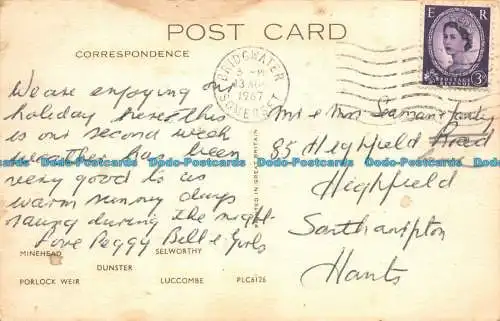 POST CARD
CORRESPONDENCE
E R
3D
POSTAGE REVENUE
BRIDGWATER
SOMERSET
1967
We are enjoying our
holiday here this
is our second week
weather has been
very good to us
warm sunny days
during the night
Love Peggy Bill & Girls
Mr & Mrs & Family
85 Highfield Road
Highfield
Southampton
Hants
PRINTED IN GREAT BRITAIN
MINEHEAD SELWORTHY
DUNSTER
PORLOCK WEIR LUCCOMBE PLC6126
Dodo-Postcards Dodo-Postcards Dodo-Postcards Dodo-Postcards Dodo-Postcards